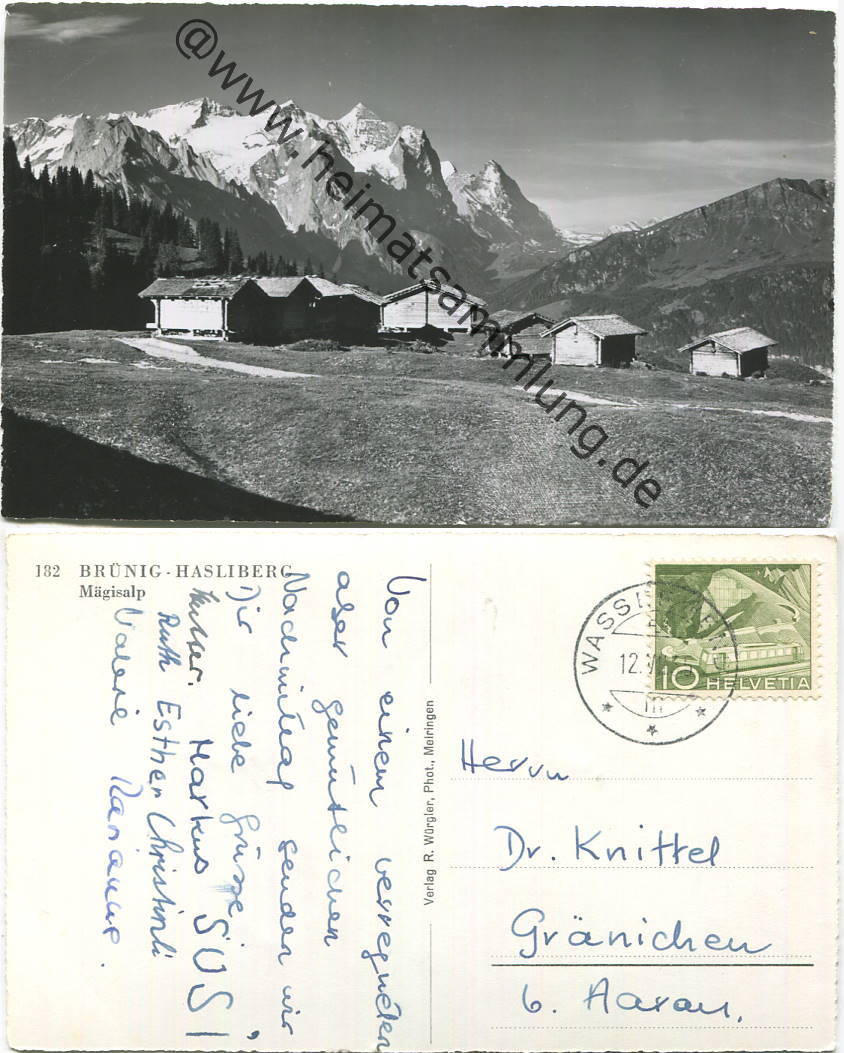 @www.heimatsammlung.de
182 BRÜNIG - HASLIBERG
Mägisalp
Von einem verregneten
aber gemütlichen
Nachmittag senden wir
Dir liebe Grüsse,
Markus SUSI
Ruth Esther Christinli
Valerie Marianne.
Verlag R. Würgler, Phot., Meiringen
WASSI
12.VI
10 HELVETIA
Herrn
Dr. Knittel
Gränichen
b. Aarau.